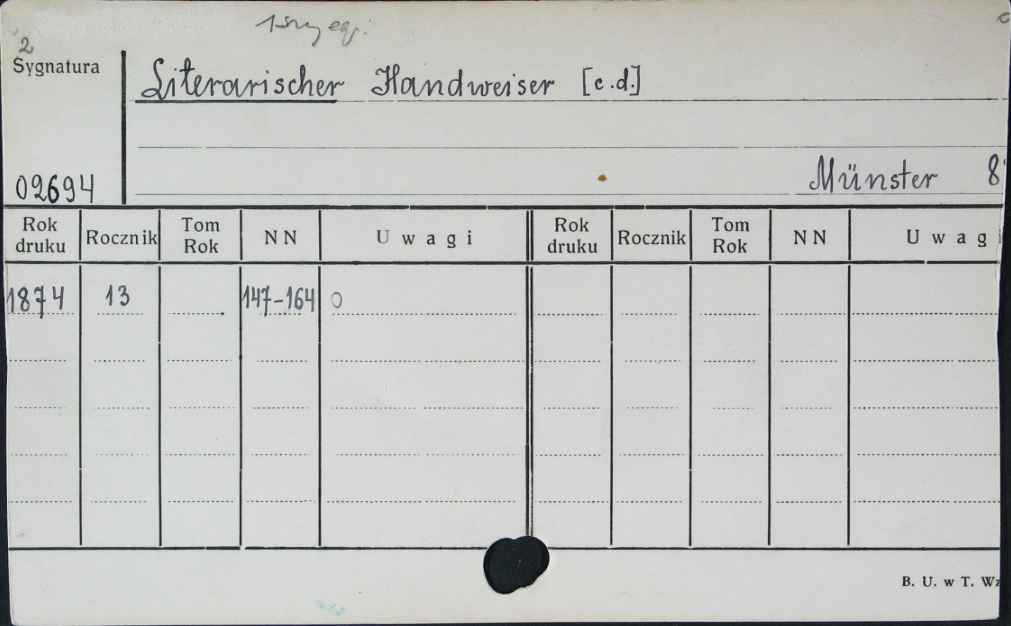 1szy egz.
2
Sygnatura
Literarischer Handweiser [c.d.]
02694
Münster 8
Rok druku Rocznik Tom Rok NN Uwagi Rok druku Rocznik Tom Rok NN Uwagi
1874 13 147-164 O
B. U. w T. Wz